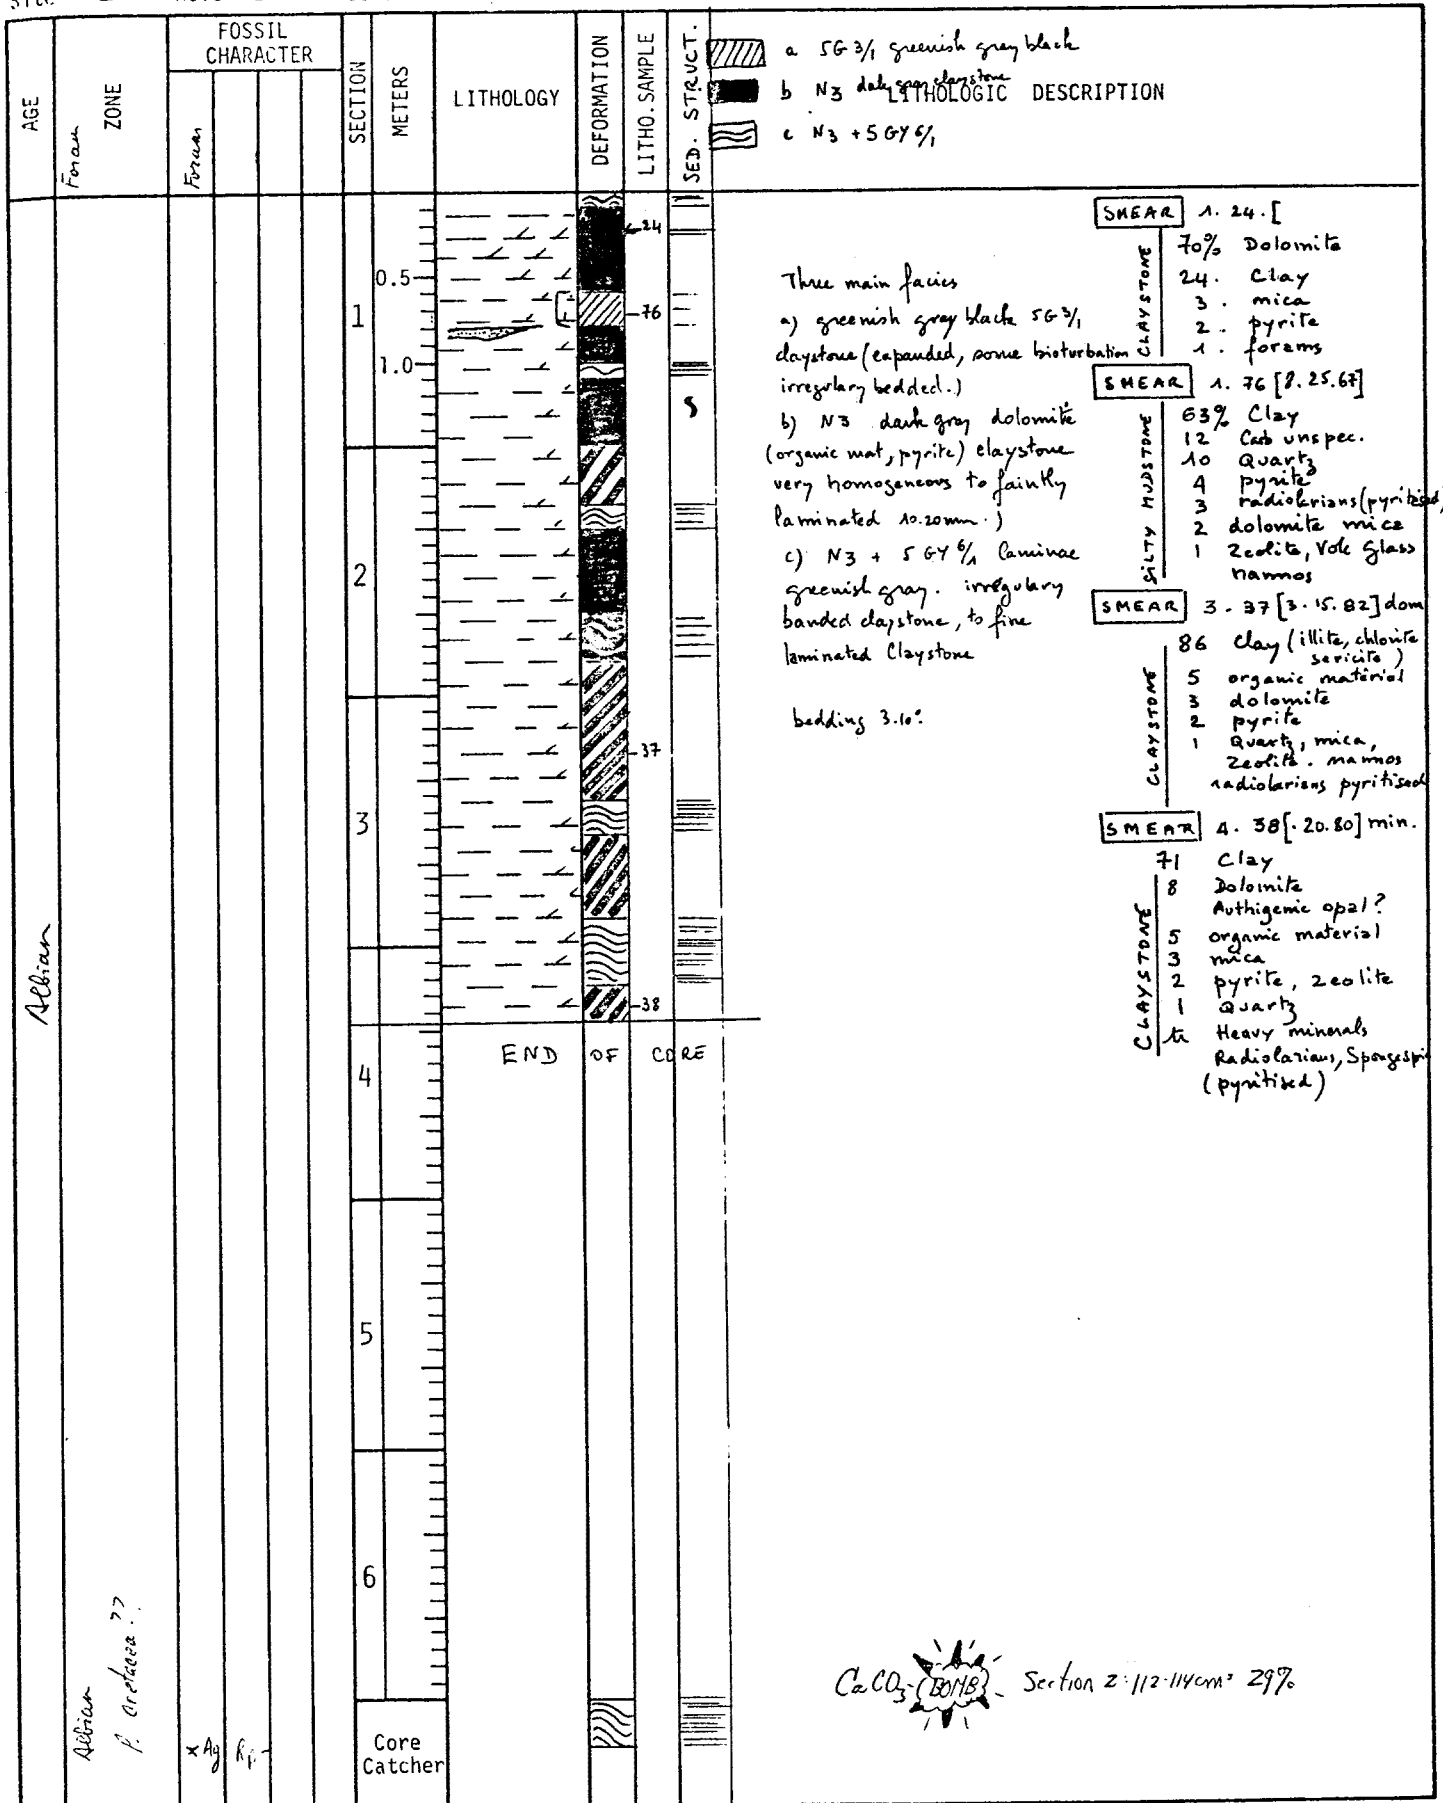 AGE
ZONE
Foram
FOSSIL
CHARACTER
Foram
SECTION
METERS
LITHOLOGY
DEFORMATION
LITHO. SAMPLE
SED. STRUCT.
LITHOLOGIC DESCRIPTION
a 5G 3/1 greenish gray black
b N3 claystone
c N3 + 5GY 6/1
0.5
1.0
1
2
3
4
5
6
24
76
37
38
END OF CORE
Core
Catcher
Albian
Albian
*Ag
Rp
Three main facies
a) greenish gray black 5G 3/1
claystone (expanded, some bioturbation
irregulary bedded.)
b) N3 dark gray dolomite
(organic mat, pyrite) claystone
very homogeneous to faintly
laminated 10.20mm.)
c) N3 + 5 GY 6/1 laminae
greenish gray. irregulary
banded claystone, to fine
laminated Claystone
bedding 3.10°
SMEAR 1. 24. [
CLAYSTONE
70% Dolomite
24. Clay
3. mica
2. pyrite
1. forams
SMEAR 1. 76 [8. 25.67]
SILTY MUDSTONE
63% Clay
12 Carb unspec.
10 Quartz
4 pyrite
3 radiolarians (pyritised)
2 dolomite mica
1 Zeolite, Volc Glass
nannos
SMEAR 3. 37 [3. 15. 82] dom
CLAYSTONE
86 Clay (illite, chlorite
sericite)
5 organic material
3 dolomite
2 pyrite
1 Quartz, mica,
Zeolite. nannos
radiolarians pyritised
SMEAR 4. 38 [. 20. 80] min.
CLAYSTONE
71 Clay
8 Dolomite
Authigenic opal?
5 organic material
3 mica
2 pyrite, zeolite
1 Quartz
tr Heavy minerals
Radiolarians, Spongespi
(pyritised)
CaCO3-(BOMB) Section 2:112-114cm= 29%